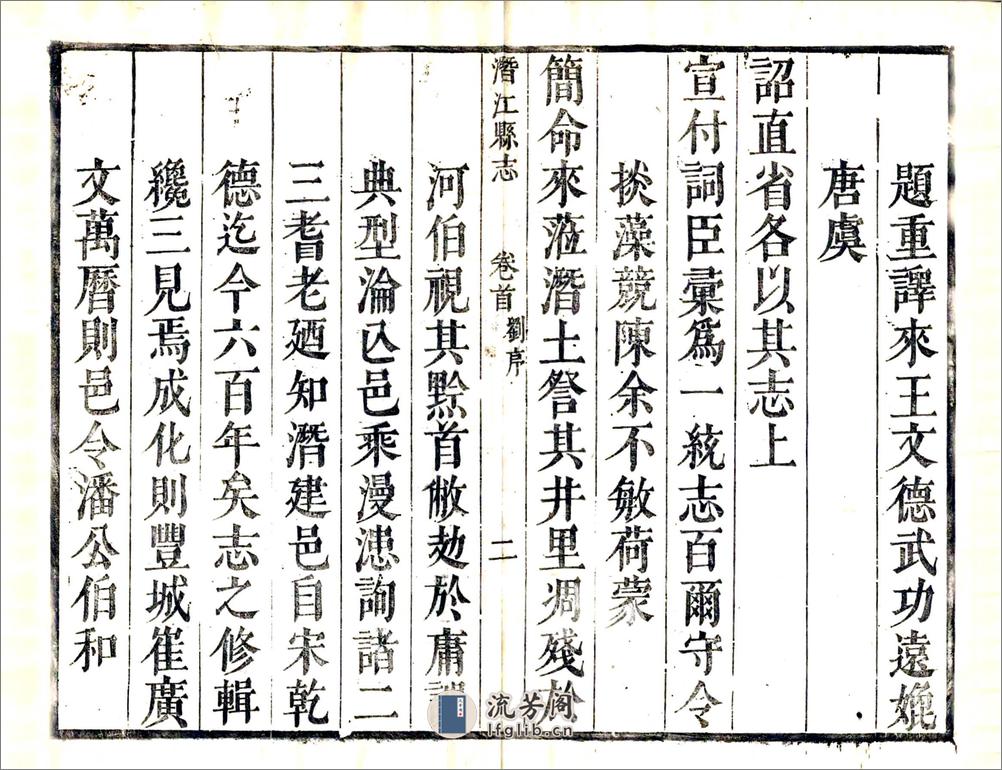 題重譯來王文德武功遠媲
唐虞
詔直省各以其志上
宣付詞臣彚爲一統志百爾守令
掞藻競陳余不敏荷蒙
簡命來蒞潛土詧其井里凋殘於
潛江縣志 卷首 劉序 二
河伯視其黔首敝攰於庸調
典型淪亾邑乘漫漶詢諸二
三耆老廼知潛建邑自宋乾
德迄今六百年矣志之修輯
纔三見焉成化則豐城崔廣
文萬曆則邑令潘公伯和
流芳阁
lfglib.cn